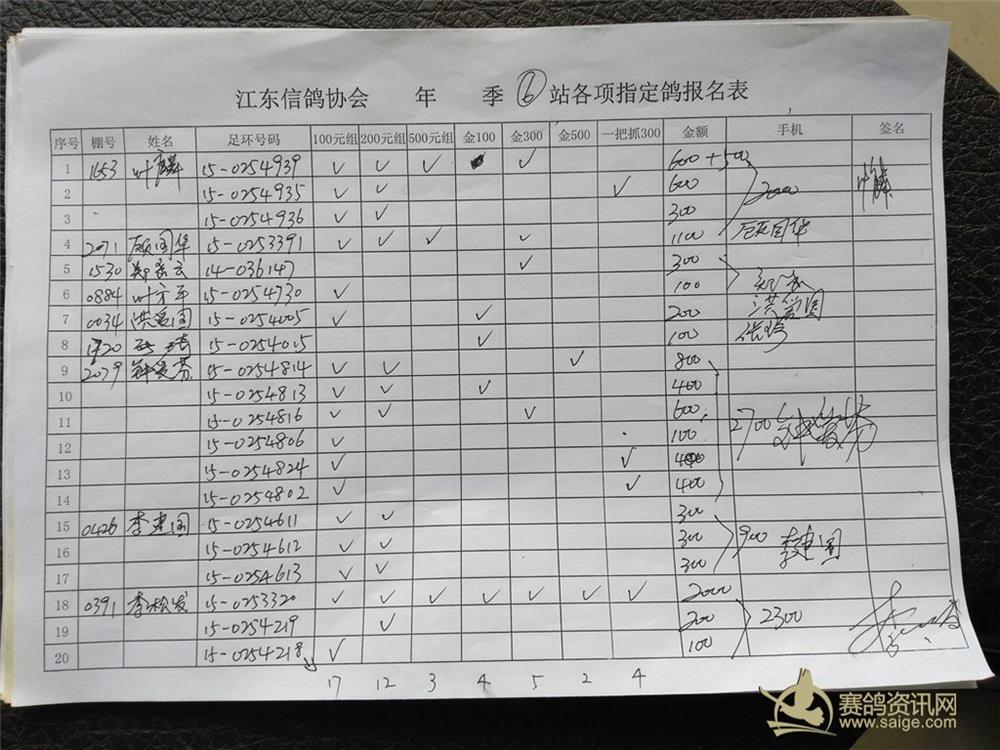 江东信鸽协会 年 季 ⑥ 站各项指定鸽报名表
序号 棚号 姓名 足环号码 100元组 200元组 500元组 金100 金300 金500 一把抓300 金额 手机 签名
1 1653 叶麟 15-0254939 ✓ ✓ ✓ ✓ 600+500
2 15-0254935 ✓ ✓ ✓ 600 2000
3 15-0254936 ✓ ✓ 300
4 2071 顾国华 15-0253391 ✓ ✓ ✓ ✓ 1100 顾国华
5 1530 14-036147 ✓ 300
6 0884 叶方平 15-0254730 ✓ 100
7 0034 洪爱国 15-0254005 ✓ ✓ 200 洪爱国
8 15-0254015 ✓ 100
9 2079 15-0254814 ✓ ✓ ✓ 800
10 15-0254813 ✓ ✓ ✓ 400
11 15-0254816 ✓ ✓ ✓ 600
12 15-0254806 ✓ 100 2700
13 15-0254824 ✓ ✓ 400
14 15-0254802 ✓ ✓ 400
15 0426 李建国 15-0254611 ✓ ✓ 300
16 15-0254612 ✓ ✓ 300 900 李建国
17 15-0254613 ✓ ✓ 300
18 0391 李松发 15-0253320 ✓ ✓ ✓ ✓ ✓ ✓ ✓ 2000
19 15-0254219 ✓ 200 2300
20 15-0254218 ✓ 100
17 12 3 4 5 2 4
赛鸽资讯网
www.saige.com